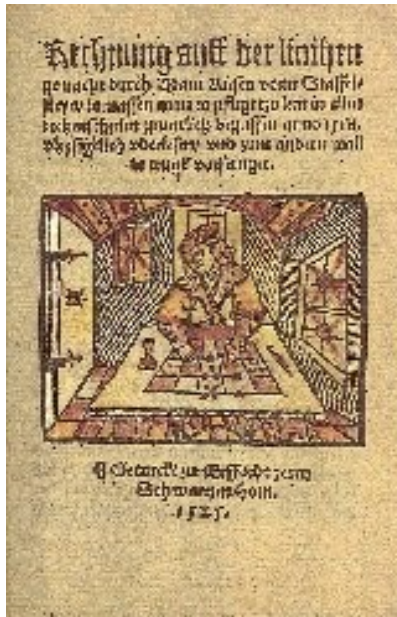 Rechnung auff der linihen
gemacht durch Adam Riesen vonn Staffel
steyn in massen man es pflegt zu lern in allen
rechenschulen gruntlich begriffen anno 1518.
vleysigklich vberlesen vnd zum andern mall
in trugk vorfertiget.
Getruckt zu Erffordt
Schwartzen Horn.
.1525.